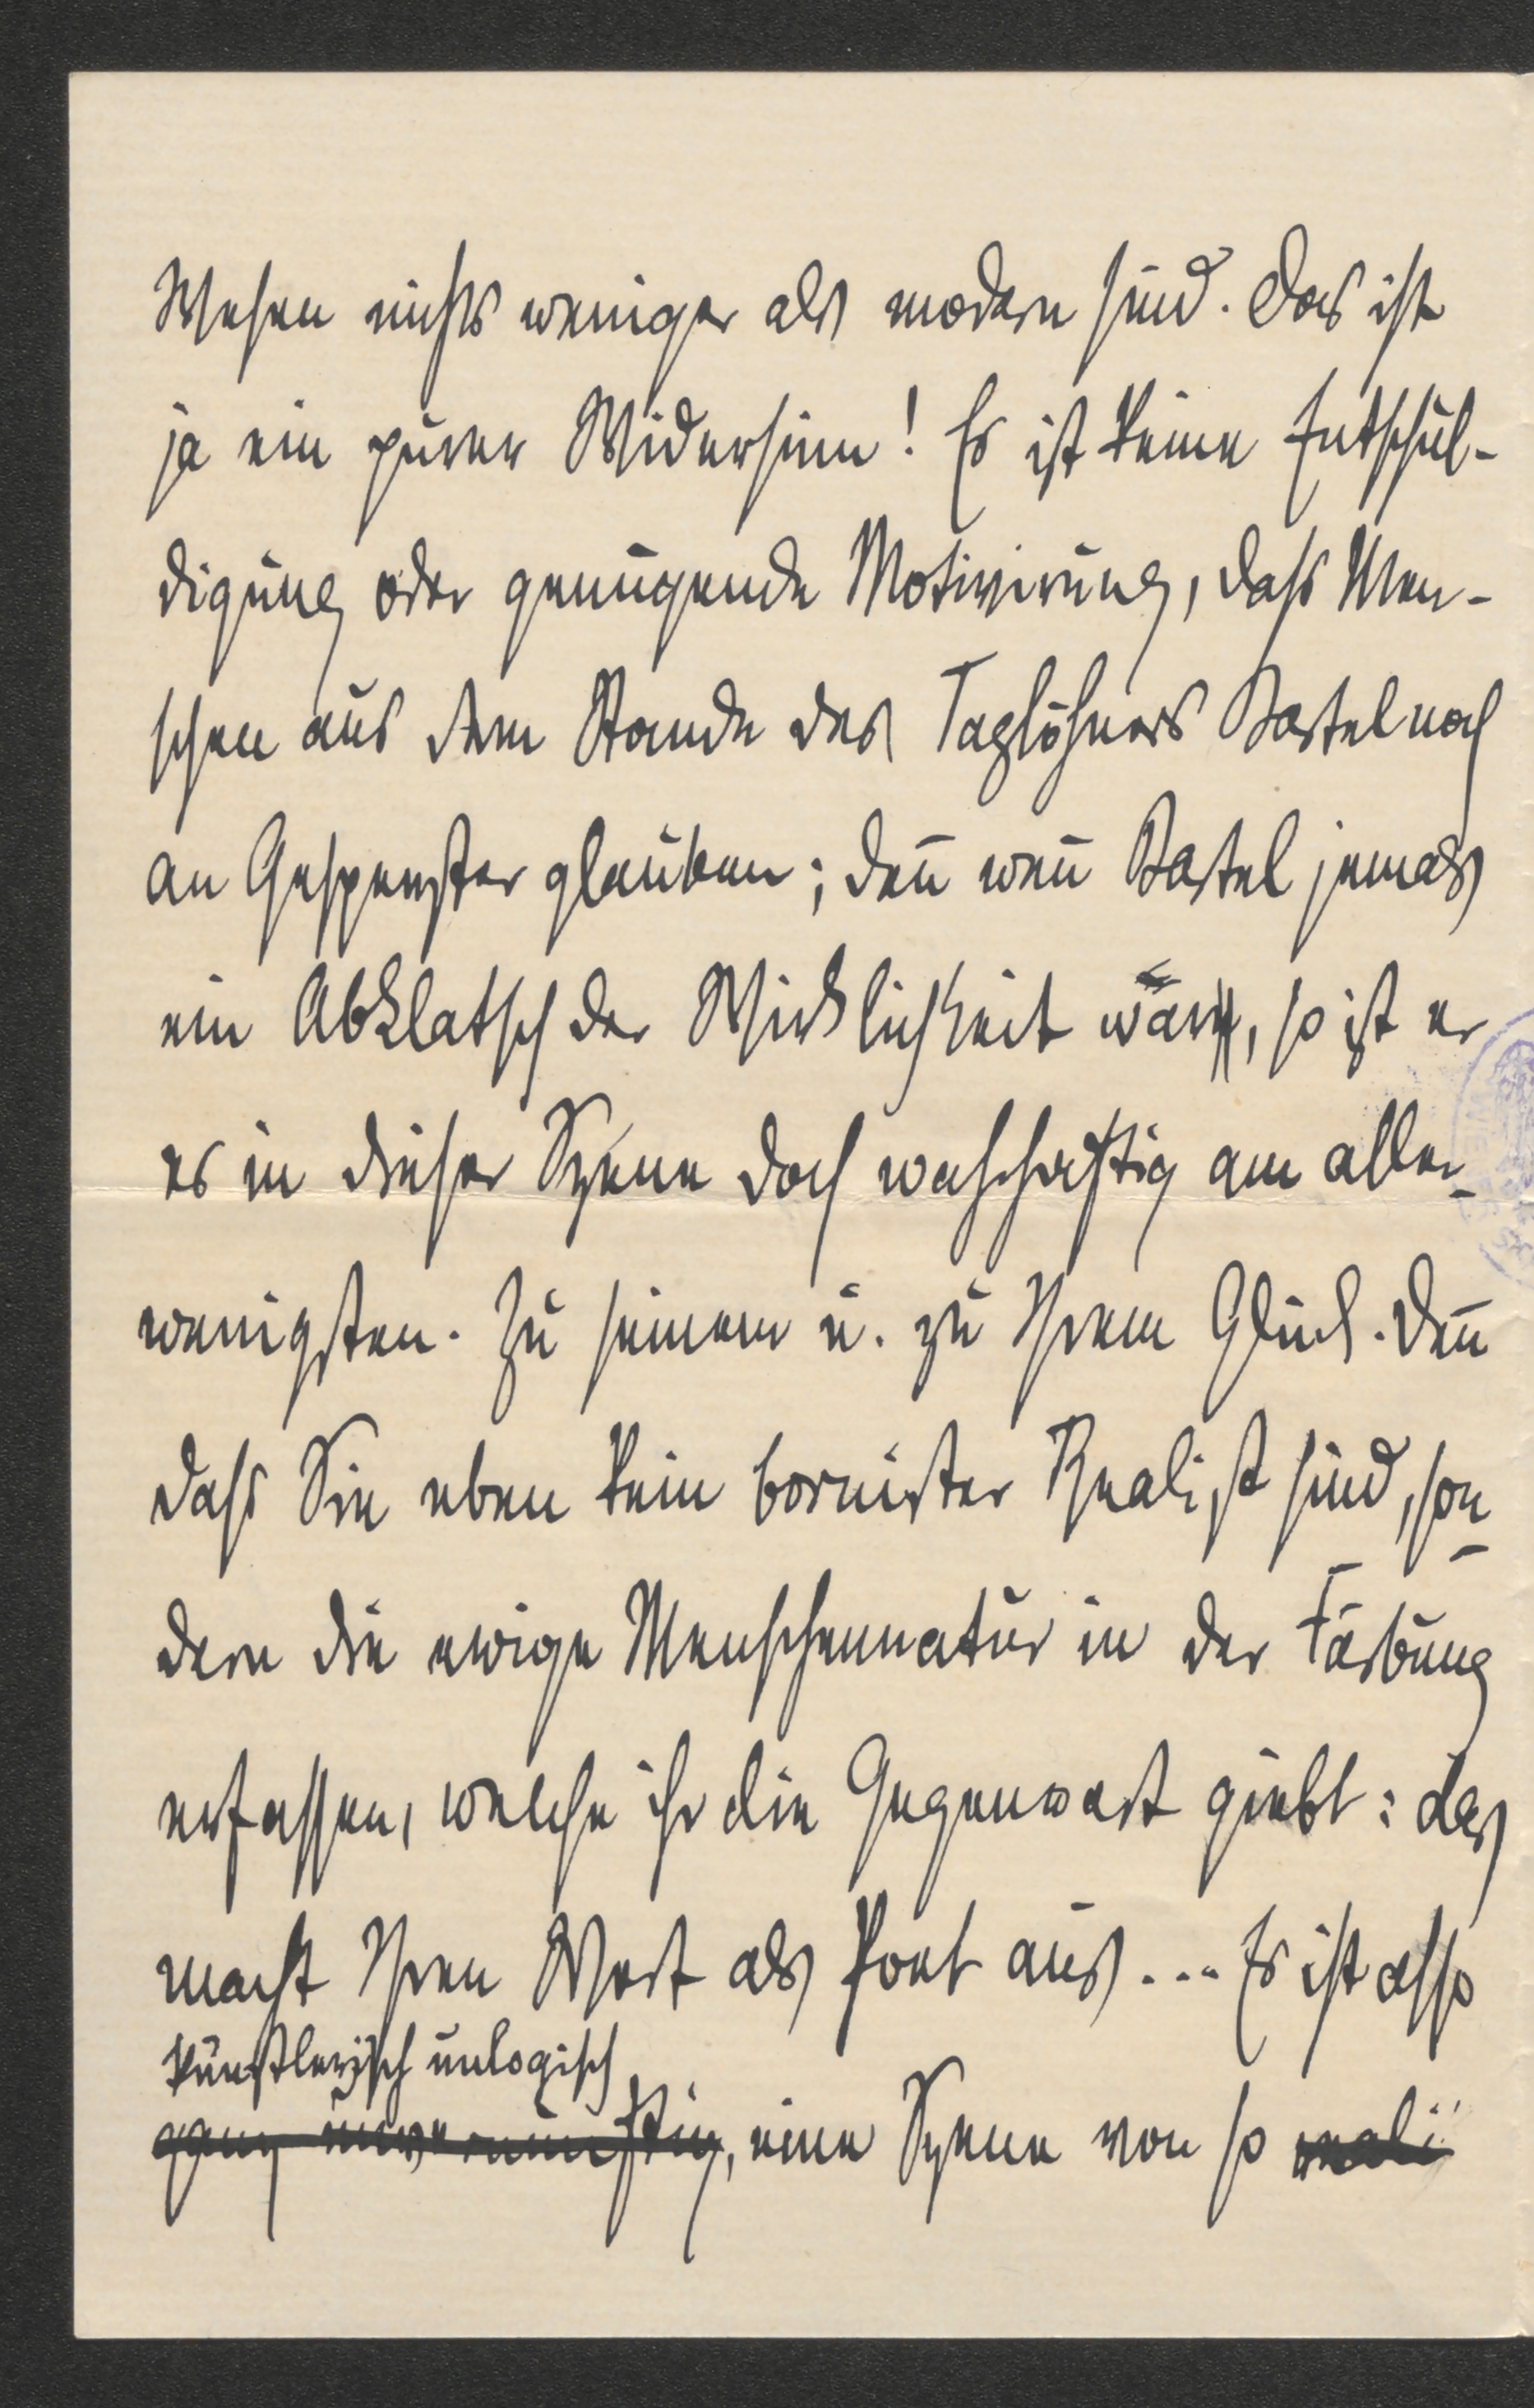 Wesen nichts weniger als modern sind. Das ist
ja ein purer Widersinn! Es ist keine Entschul-
digung oder genügende Motivirung, daß Men-
schen aus dem Stande des Taglöhners Bartel noch
an Gespenster glauben; deñ weñ Bartel jemals
ein Abklatsch der Wirklichkeit wäre, so ist er
es in dieser Szene doch wahrhaftig am aller-
wenigsten. Zu seinem u. zu Ihrem Glück. Deñ
daß Sie eben kein bornirter Realist sind, son-
dern die ewige Menschennatur in der Färbung
erfassen, welche ihr die Gegenwart giebt: das
macht Ihren Wert als Poet aus... Es ist also
künstlerisch unlogisch
ganz unvernünftig, eine Szene von so reali